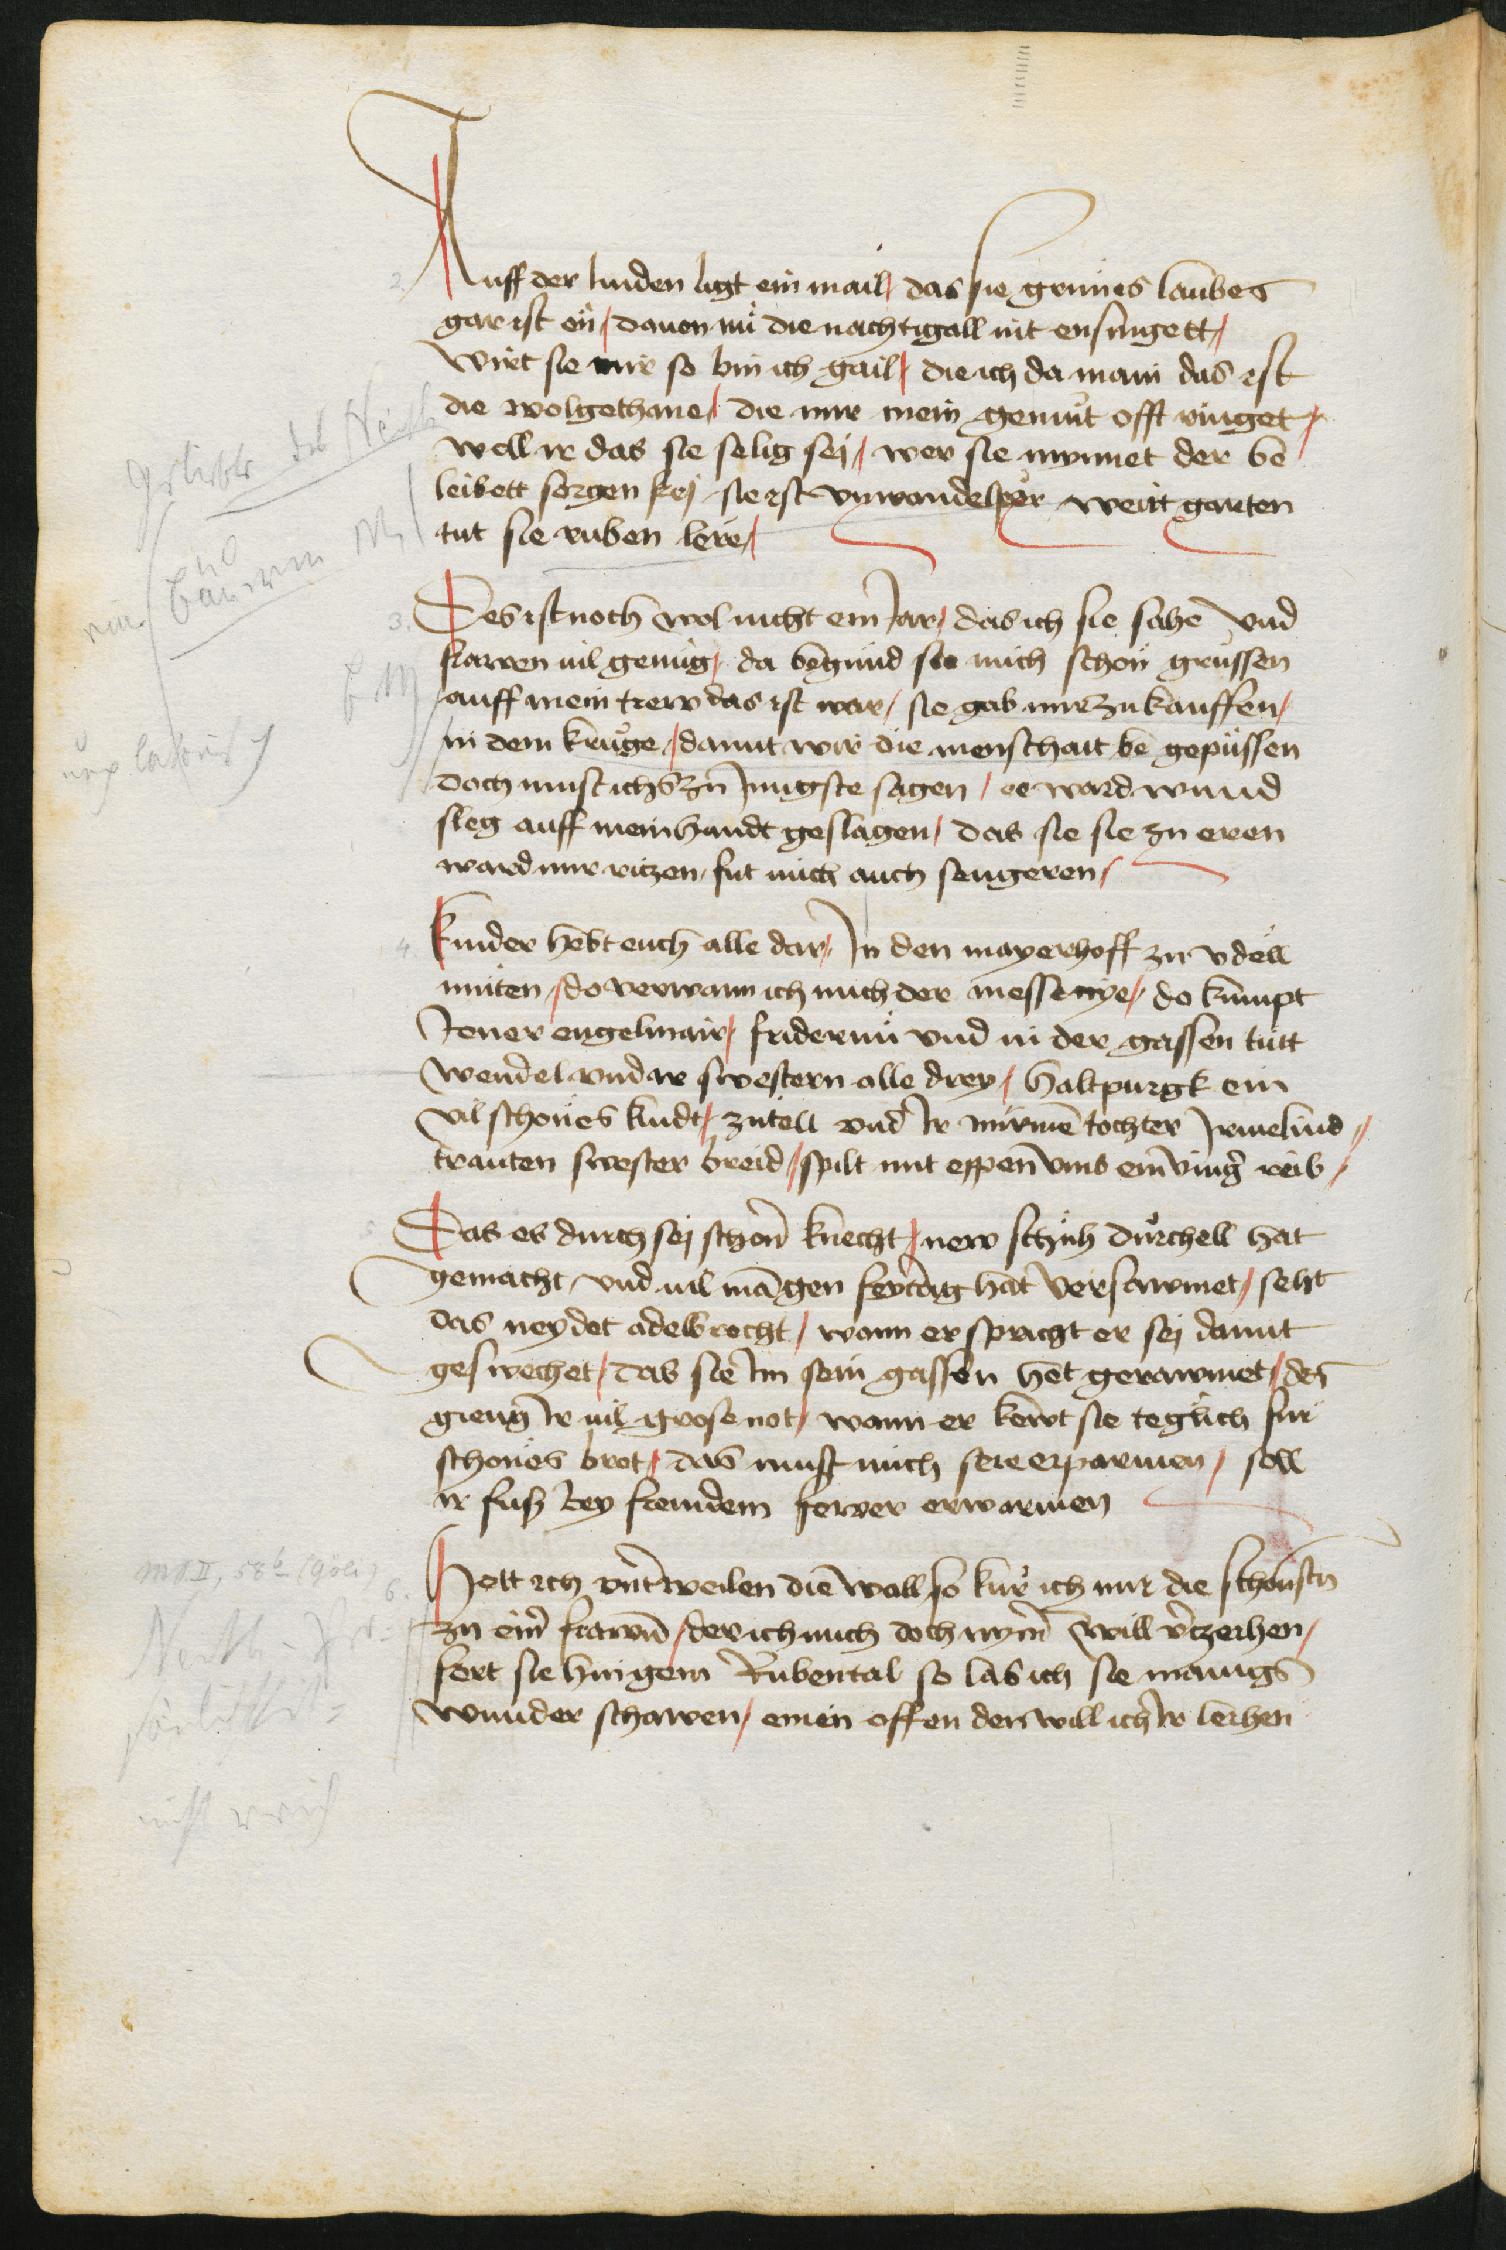 Auff der linden ligt ein mail / das sie grunes laubes
gar ist on / dauon mir die nachtigall nit ensinget /
wirt sie mir so bin ich gail / die ich da main das ist
die wolgethane / die mir mein gemut offt ringet /
woll ir das sie selig sei / wer sie mynnet der be
leibett sorgen frej sie ist vnwandelper weitt garten
tut sie ruben lere /
3. Des ist noch wol nicht ein Jar / das ich sie sahe vnd
frawen vil genug / da begund sie mich schon grussen
auff mein trew das ist war / sie gab mir zu kauffen /
in dem kruge / damit wir die menschait be gepussen
doch must ichs zu Jungste sagen / ee ward wund
sleg auff mein handt geslagen / das sie sie zu eren
ward mir ritzen fut mich auch sengeren /
4. Kinder hebt euch alle dar / In den mayerhoff zu vdell
miten / do verwann ich mich der messenye / do kumpt
Jener engelmair / friderun vnd in der gassen tutt
wendel vnd ir swestern alle drey / haltpurgk ein
vil schones kindt / zutell vnd Ir mumen tochter Irmelind /
trauten swester breid / spilt mit eppen vmb ein ving reib /
5 Das es durch sej schon knecht / new schuh durchell hat
gemacht / vnd vil mangen feyrtag hat versawmet / seht
das neydet adelbrecht / wann er spricht er sej damit
geswechet / das sie im sein gassen het gerawmet / des
gieng Ir vil grose not / wann er kewt sie teglich fur
schones brot / das must mich sere erparmen / soll
ir fuß bey fremdem fewer erwarmen
6. Hett ich vnterweilen die wall so kur ich mir die schonsten
zu einer frawen / der ich mich doch nymer will verzeihen /
fert sie hin gein Rubental so las ich sie manigs
wunder schawen / einen offen den will ich Ir leihen
MS II, 58b (Göli)